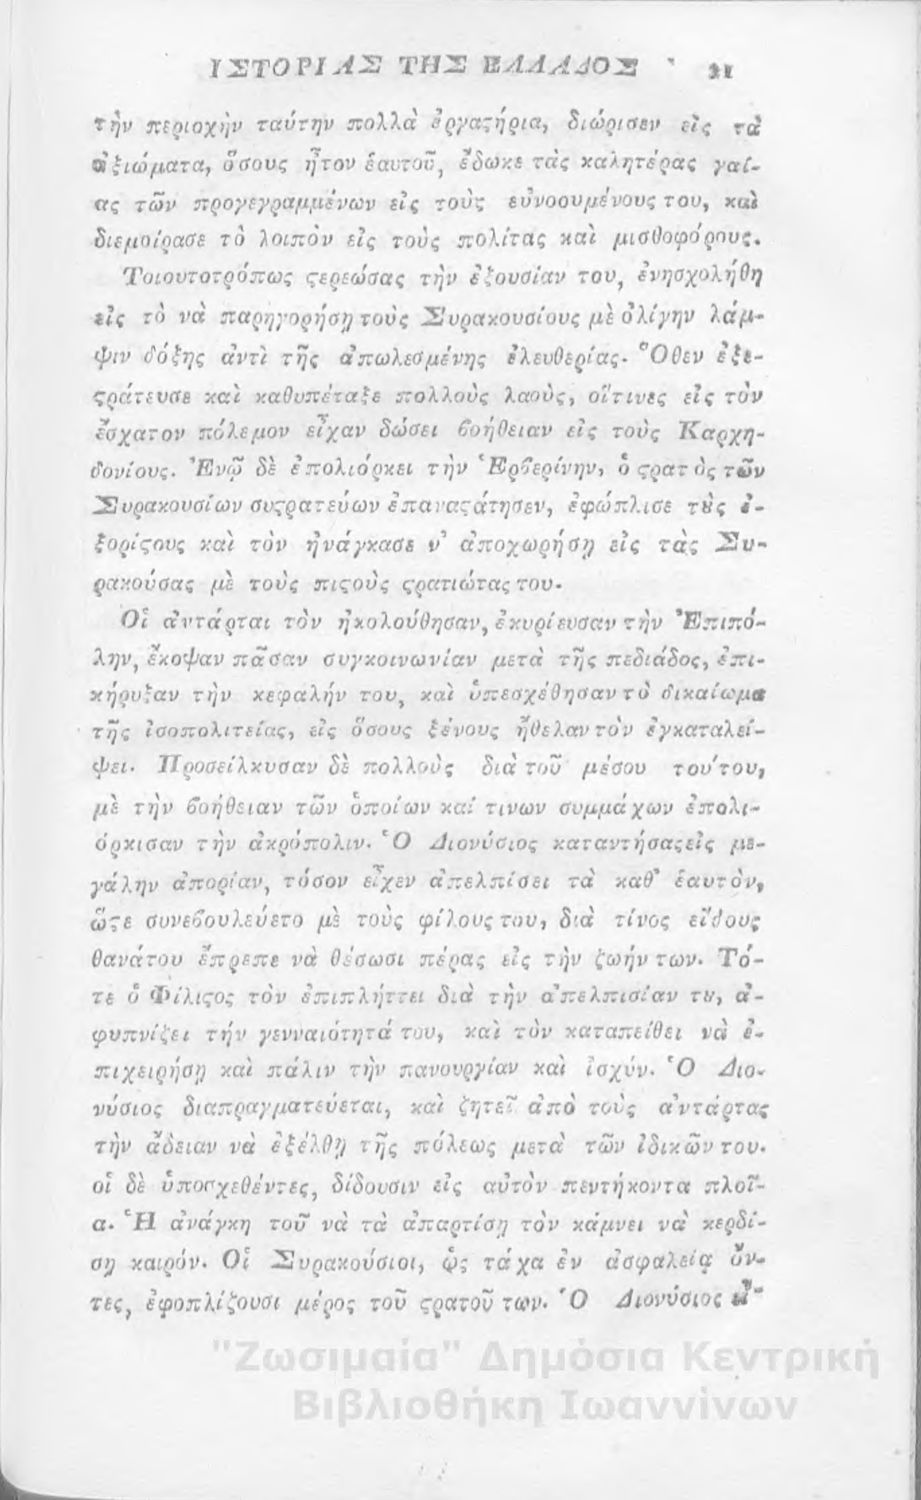 ΙΣΤΟΡΙΑΣ ΤΗΣ ΕΛΛΑΔΟΣ 21
τὴν περιοχὴν ταύτην πολλὰ ἐργαϛήρια, διώρισεν εἰς τὰ
ἀξιώματα, ὅσους ἦτον ἑαυτοῦ, ἔδωκε τὰς καλητέρας γαί-
ας τῶν προγεγραμμένων εἰς τοὺς εὐνοουμένους του, καὶ
διεμοίρασε τὸ λοιπὸν εἰς τοὺς πολίτας καὶ μισθοφόρους.
Τοιουτοτρόπως ϛερεώσας τὴν ἐξουσίαν του, ἐνησχολήθη
εἰς τὸ νὰ παρηγορήσῃ τοὺς Συρακουσίους μὲ ὀλίγην λάμ-
ψιν δόξης ἀντὶ τῆς ἀπωλεσμένης ἐλευθερίας. Ὅθεν ἐξε-
ϛράτευσε καὶ καθυπέταξε πολλοὺς λαοὺς, οἵτινες εἰς τὸν
ἔσχατον πόλεμον εἶχαν δώσει ϐοήθειαν εἰς τοὺς Καρχη-
δονίους. Ἐνῷ δὲ ἐπολιόρκει τὴν Ἑρϐερίνην, ὁ ϛρατὸς τῶν
Συρακουσίων συϛρατεύων ἐπαναϛάτησεν, ἐφώπλισε τȣς ἐ-
ξορίϛους καὶ τὸν ἠνάγκασε ν' ἀποχωρήσῃ εἰς τὰς Συ-
ρακούσας μὲ τοὺς πιϛοὺς ϛρατιώτας του.
Οἱ ἀντάρται τὸν ἠκολούθησαν, ἐκυρίευσαν τὴν Ἐπιπό-
λην, ἔκοψαν πᾶσαν συγκοινωνίαν μετὰ τῆς πεδιάδος, ἐπι-
κήρυξαν τὴν κεφαλήν του, καὶ ὑπεσχέθησαν τὸ δικαίωμα
τῆς ἰσοπολιτείας, εἰς ὅσους ξένους ἤθελαν τὸν ἐγκαταλεί-
ψει. Προσείλκυσαν δὲ πολλοὺς διὰ τοῦ μέσου τούτου,
μὲ τὴν ϐοήθειαν τῶν ὁποίων καί τινων συμμάχων ἐπολι-
όρκισαν τὴν ἀκρόπολιν. Ὁ Διονύσιος καταντήσας εἰς με-
γάλην ἀπορίαν, τόσον εἶχεν ἀπελπίσει τὰ καθ' ἑαυτὸν,
ὥϛε συνεϐουλεύετο μὲ τοὺς φίλους του, διὰ τίνος εἴδους
θανάτου ἔπρεπε νὰ θέσωσι πέρας εἰς τὴν ζωήν των. Τό-
τε ὁ Φίλιϛος τὸν ἐπιπλήττει διὰ τὴν ἀπελπισίαν τȣ, ἀ-
φυπνίζει τὴν γενναιότητά του, καὶ τὸν καταπείθει νὰ ἐ-
πιχειρήσῃ καὶ πάλιν τὴν πανουργίαν καὶ ἰσχύν. Ὁ Διο-
νύσιος διαπραγματεύεται, καὶ ζητεῖ ἀπὸ τοὺς ἀντάρτας
τὴν ἄδειαν νὰ ἐξέλθῃ τῆς πόλεως μετὰ τῶν ἰδικῶν του.
οἱ δὲ ὑποσχεθέντες, δίδουσιν εἰς αὐτὸν πεντήκοντα πλοῖ-
α. Ἡ ἀνάγκη τοῦ νὰ τὰ ἀπαρτίσῃ τὸν κάμνει νὰ κερδί-
σῃ καιρόν. Οἱ Συρακούσιοι, ὡς τάχα ἐν ἀσφαλείᾳ ὄν-
τες, ἐφοπλίζουσι μέρος τοῦ ϛρατοῦ των. Ὁ Διονύσιος
"Ζωσιμαία" Δημόσια Κεντρική
Βιβλιοθήκη Ιωαννίνων